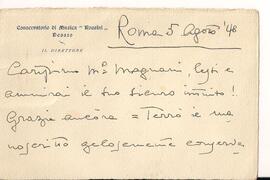 Conservatorio di Musica "Rossini"
Pesaro
IL DIRETTORE
Roma 5 Agosto '48
Carissimo Mº Magnani, lessi e
ammirai il suo
Grazie ancora = Terrò il ma
noscritto gelosamente conserva